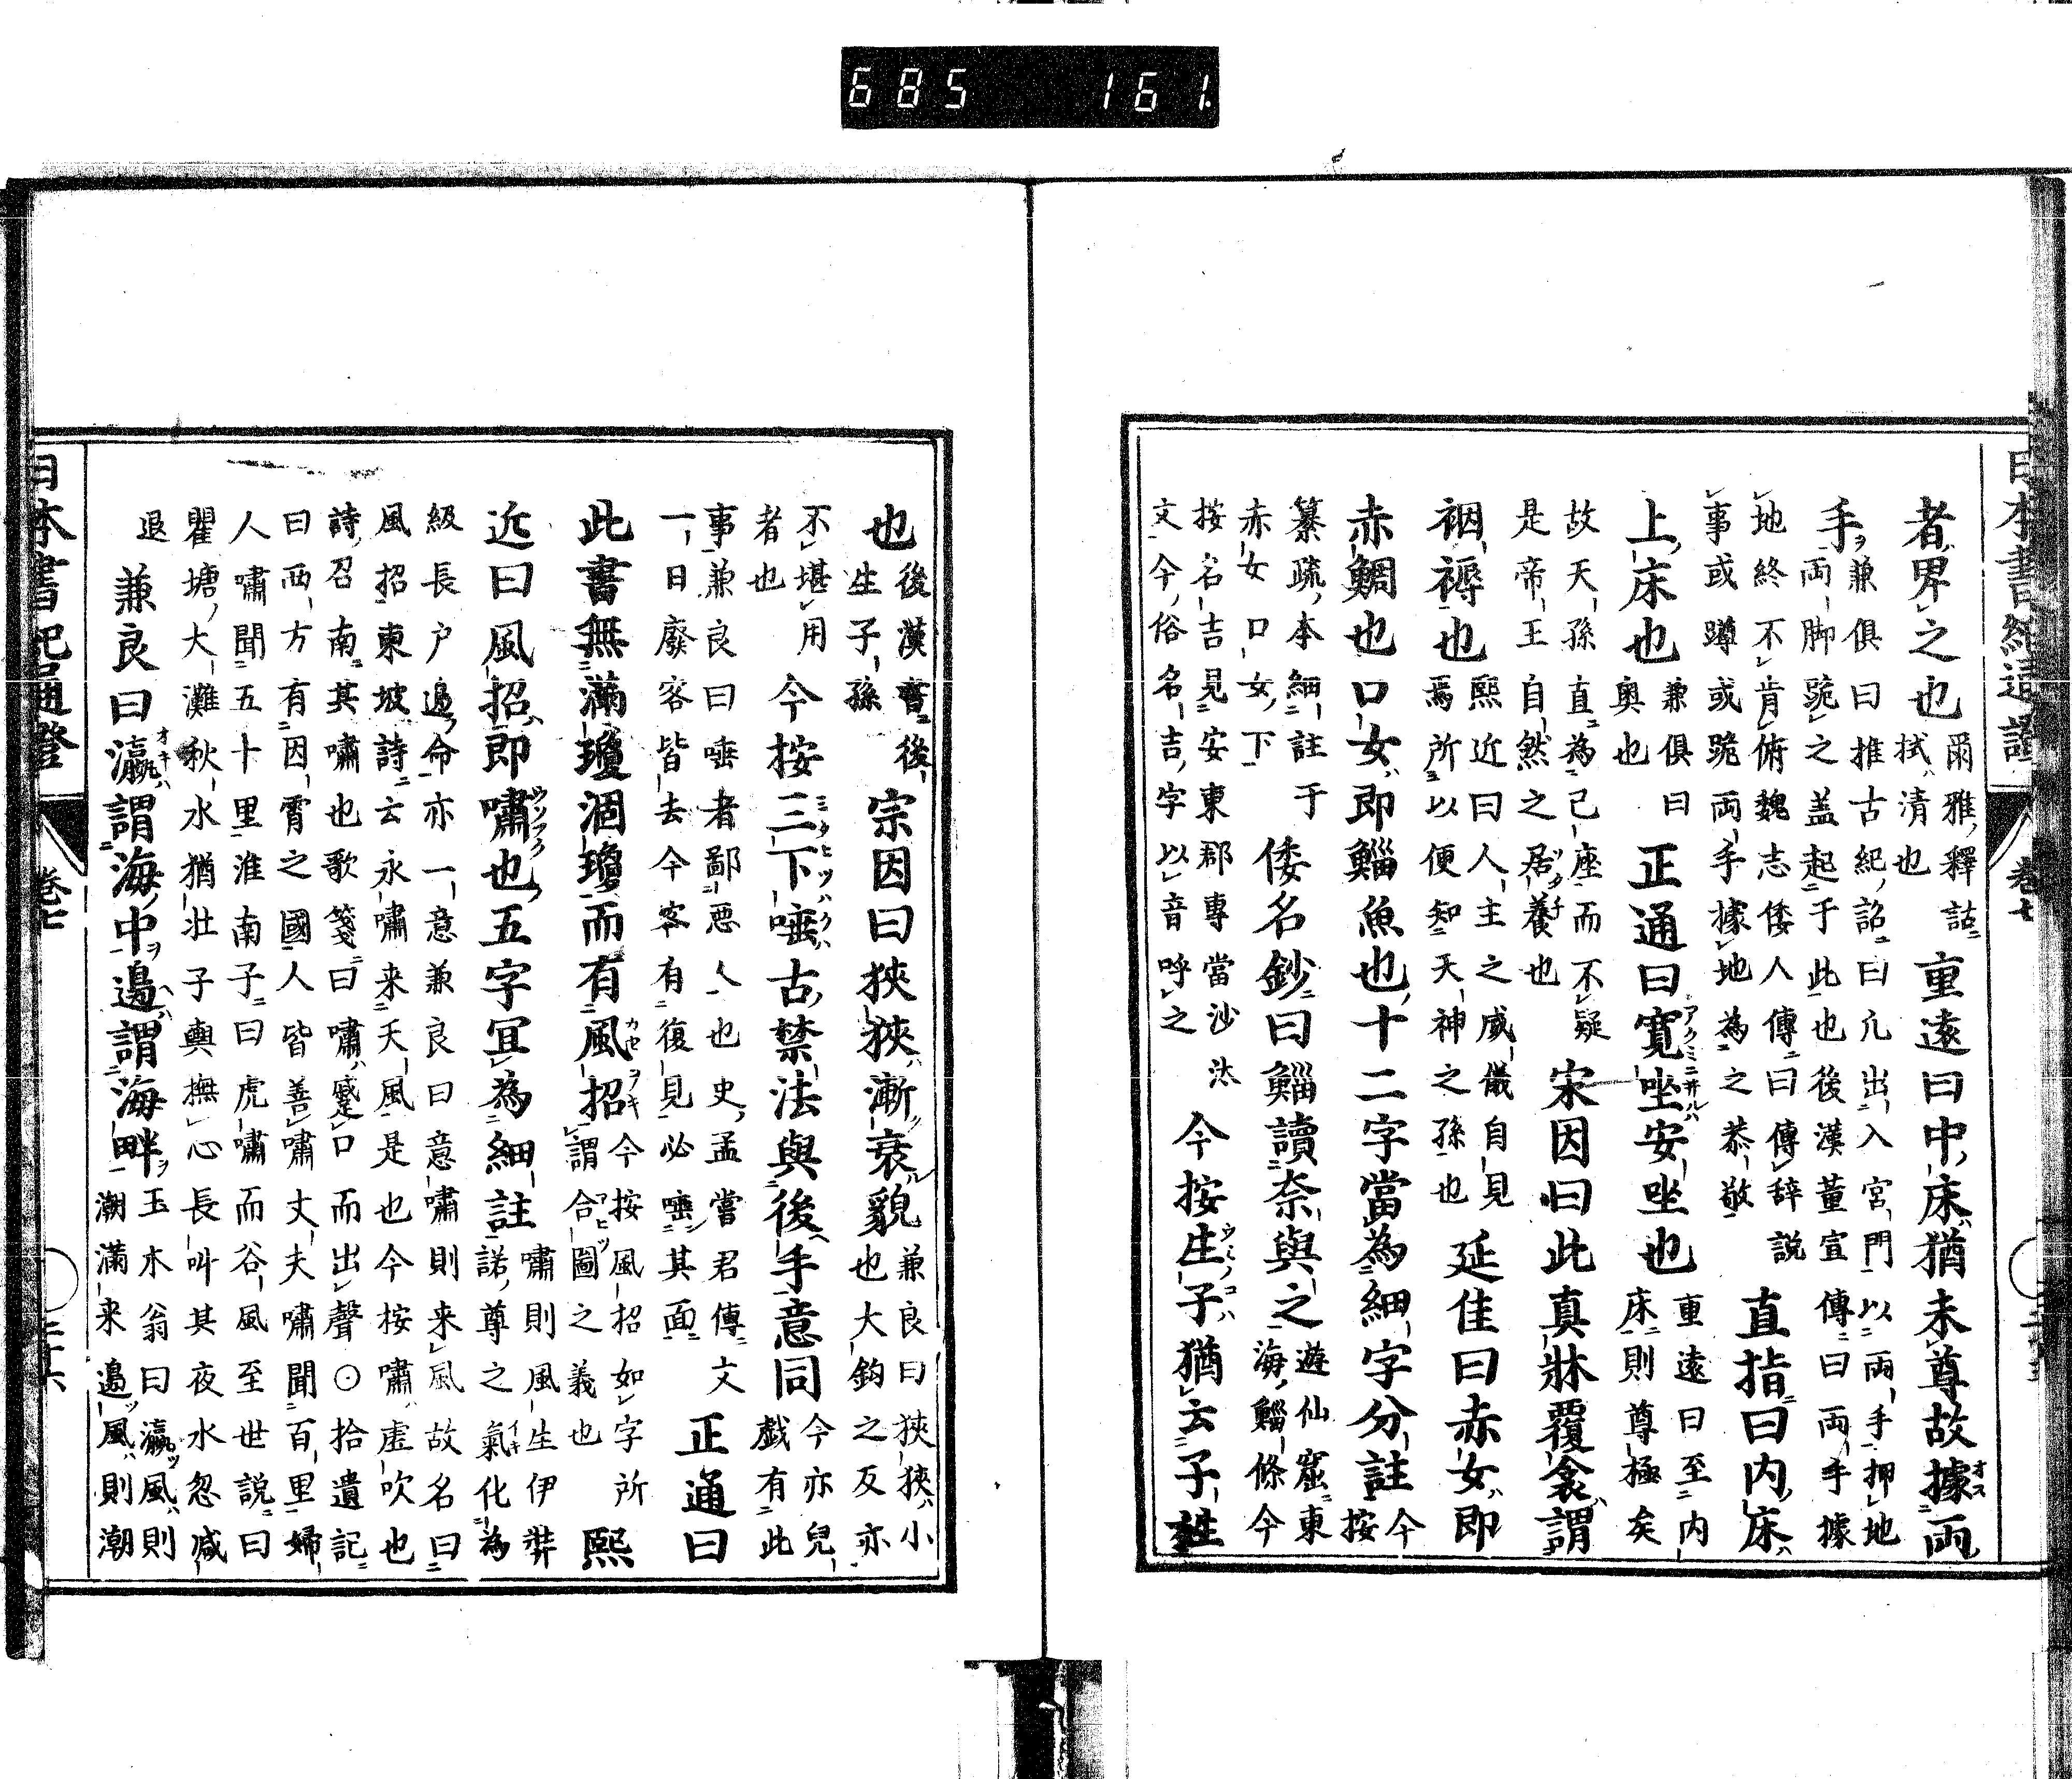 685 161
日本書紀通證 卷七
者畀之也
爾雅釋詁
拭清也
重遠曰中床猶未尊故據兩
手
兼俱曰推古紀詔曰凡出入宮門以兩手押地
兩脚跪之盖起于此也後漢董宣傳曰兩手據
地終不肯俯魏志倭人傳曰傳辞説
事或蹲或跪兩手據地為之恭敬
直指曰内床
上床也
兼俱曰
奥也
正通曰寛坐安坐也
重遠曰至内
床則尊極矣
故天孫直為己座而不疑
是帝王自然之居養也
宋因曰此真牀覆衾謂
裀褥也
熙近曰人主之威儀自見
焉所以便知天神之孫也
延佳曰赤女即
赤鯛也口女即鯔魚也十二字當為細字分註
今
按
纂疏本細註于
赤女口女下
倭名鈔曰鯔讀奈與之
遊仙窟東
海鯔條今
按名吉見安東郡專當沙汰
文今俗名吉字以音呼之
今按生子猶云子姓
也
後漢書後
生子孫
宗因曰狹狹漸衰貌
兼良曰狹狹小
也大鈎之反亦
不堪用
者也
今按三下唾古禁法與後手意同
今亦兒
戯有此
事兼良曰唾者鄙惡人也史孟嘗君傳文
一日廢客皆去今客有復見必唾其面
正通曰
此書無滿瓊涸瓊而有風招
今按風招如字所
謂合圖之義也
熙
近曰風招即嘯也五字冝為細註
嘯則風生伊弉
諾尊之氣化為
級長戸邊命亦一意兼良曰意嘯則来風故名曰
風招東坡詩云永嘯来天風是也今按嘯虚吹也
詩召南其嘯也歌箋曰嘯蹙口而出聲○拾遺記
曰西方有因霄之國人皆善嘯丈夫嘯聞百里婦
人嘯聞五十里淮南子曰虎嘯而谷風至世説曰
瞿塘大灘秋水猶壮子輿撫心長叫其夜水忽减
退
兼良曰瀛謂海中邊謂海畔
玉木翁曰瀛風則
潮滿来邊風則潮
日本書紀通證 卷七